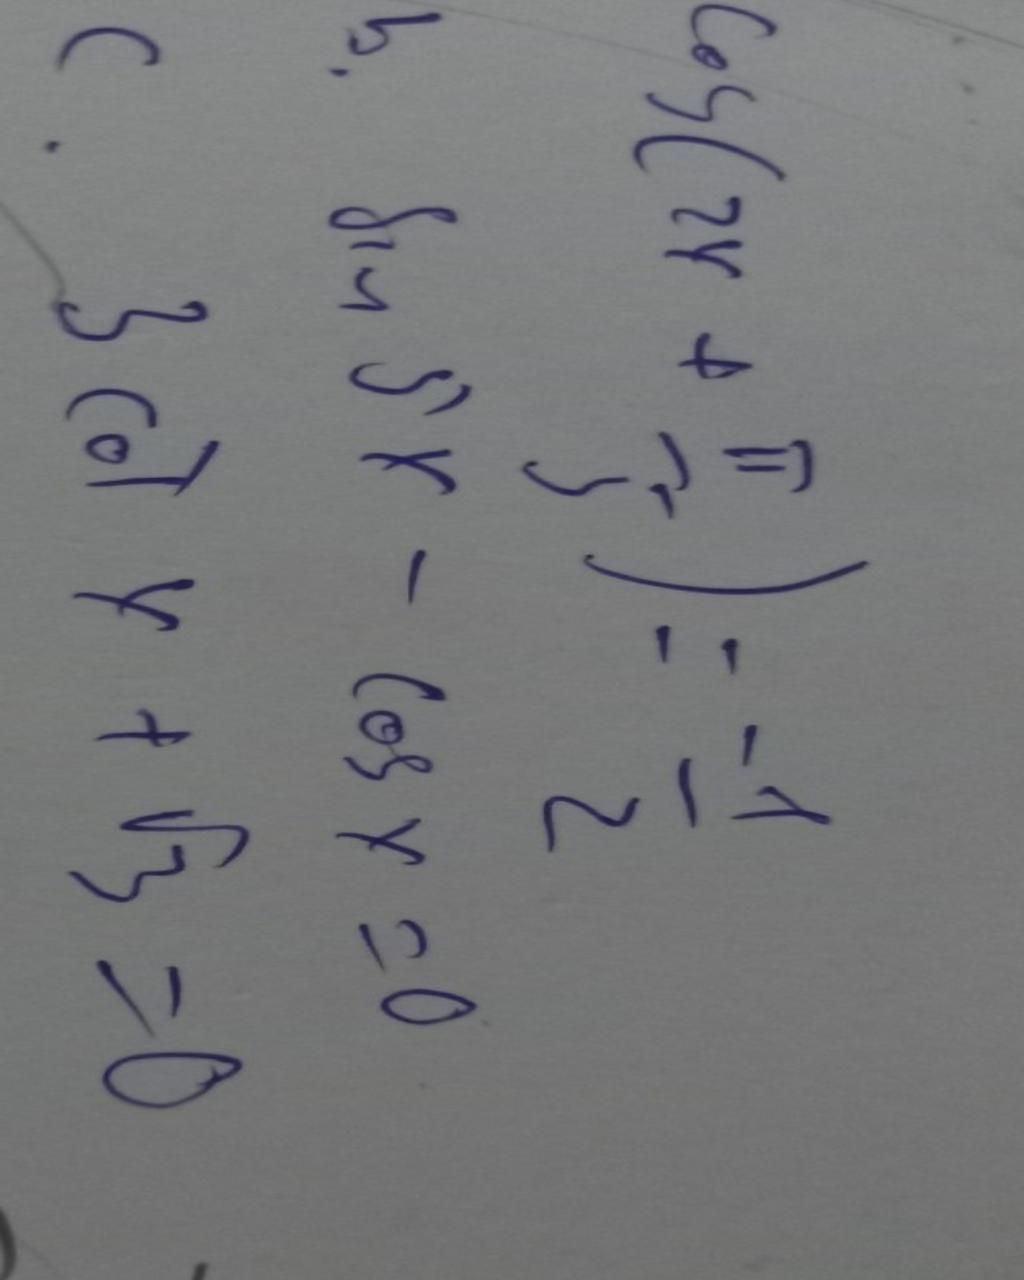 cos(2x + π/3) = -1/2
b. sin 5x - cos x = 0
c. 3 cot x + √3 = 0